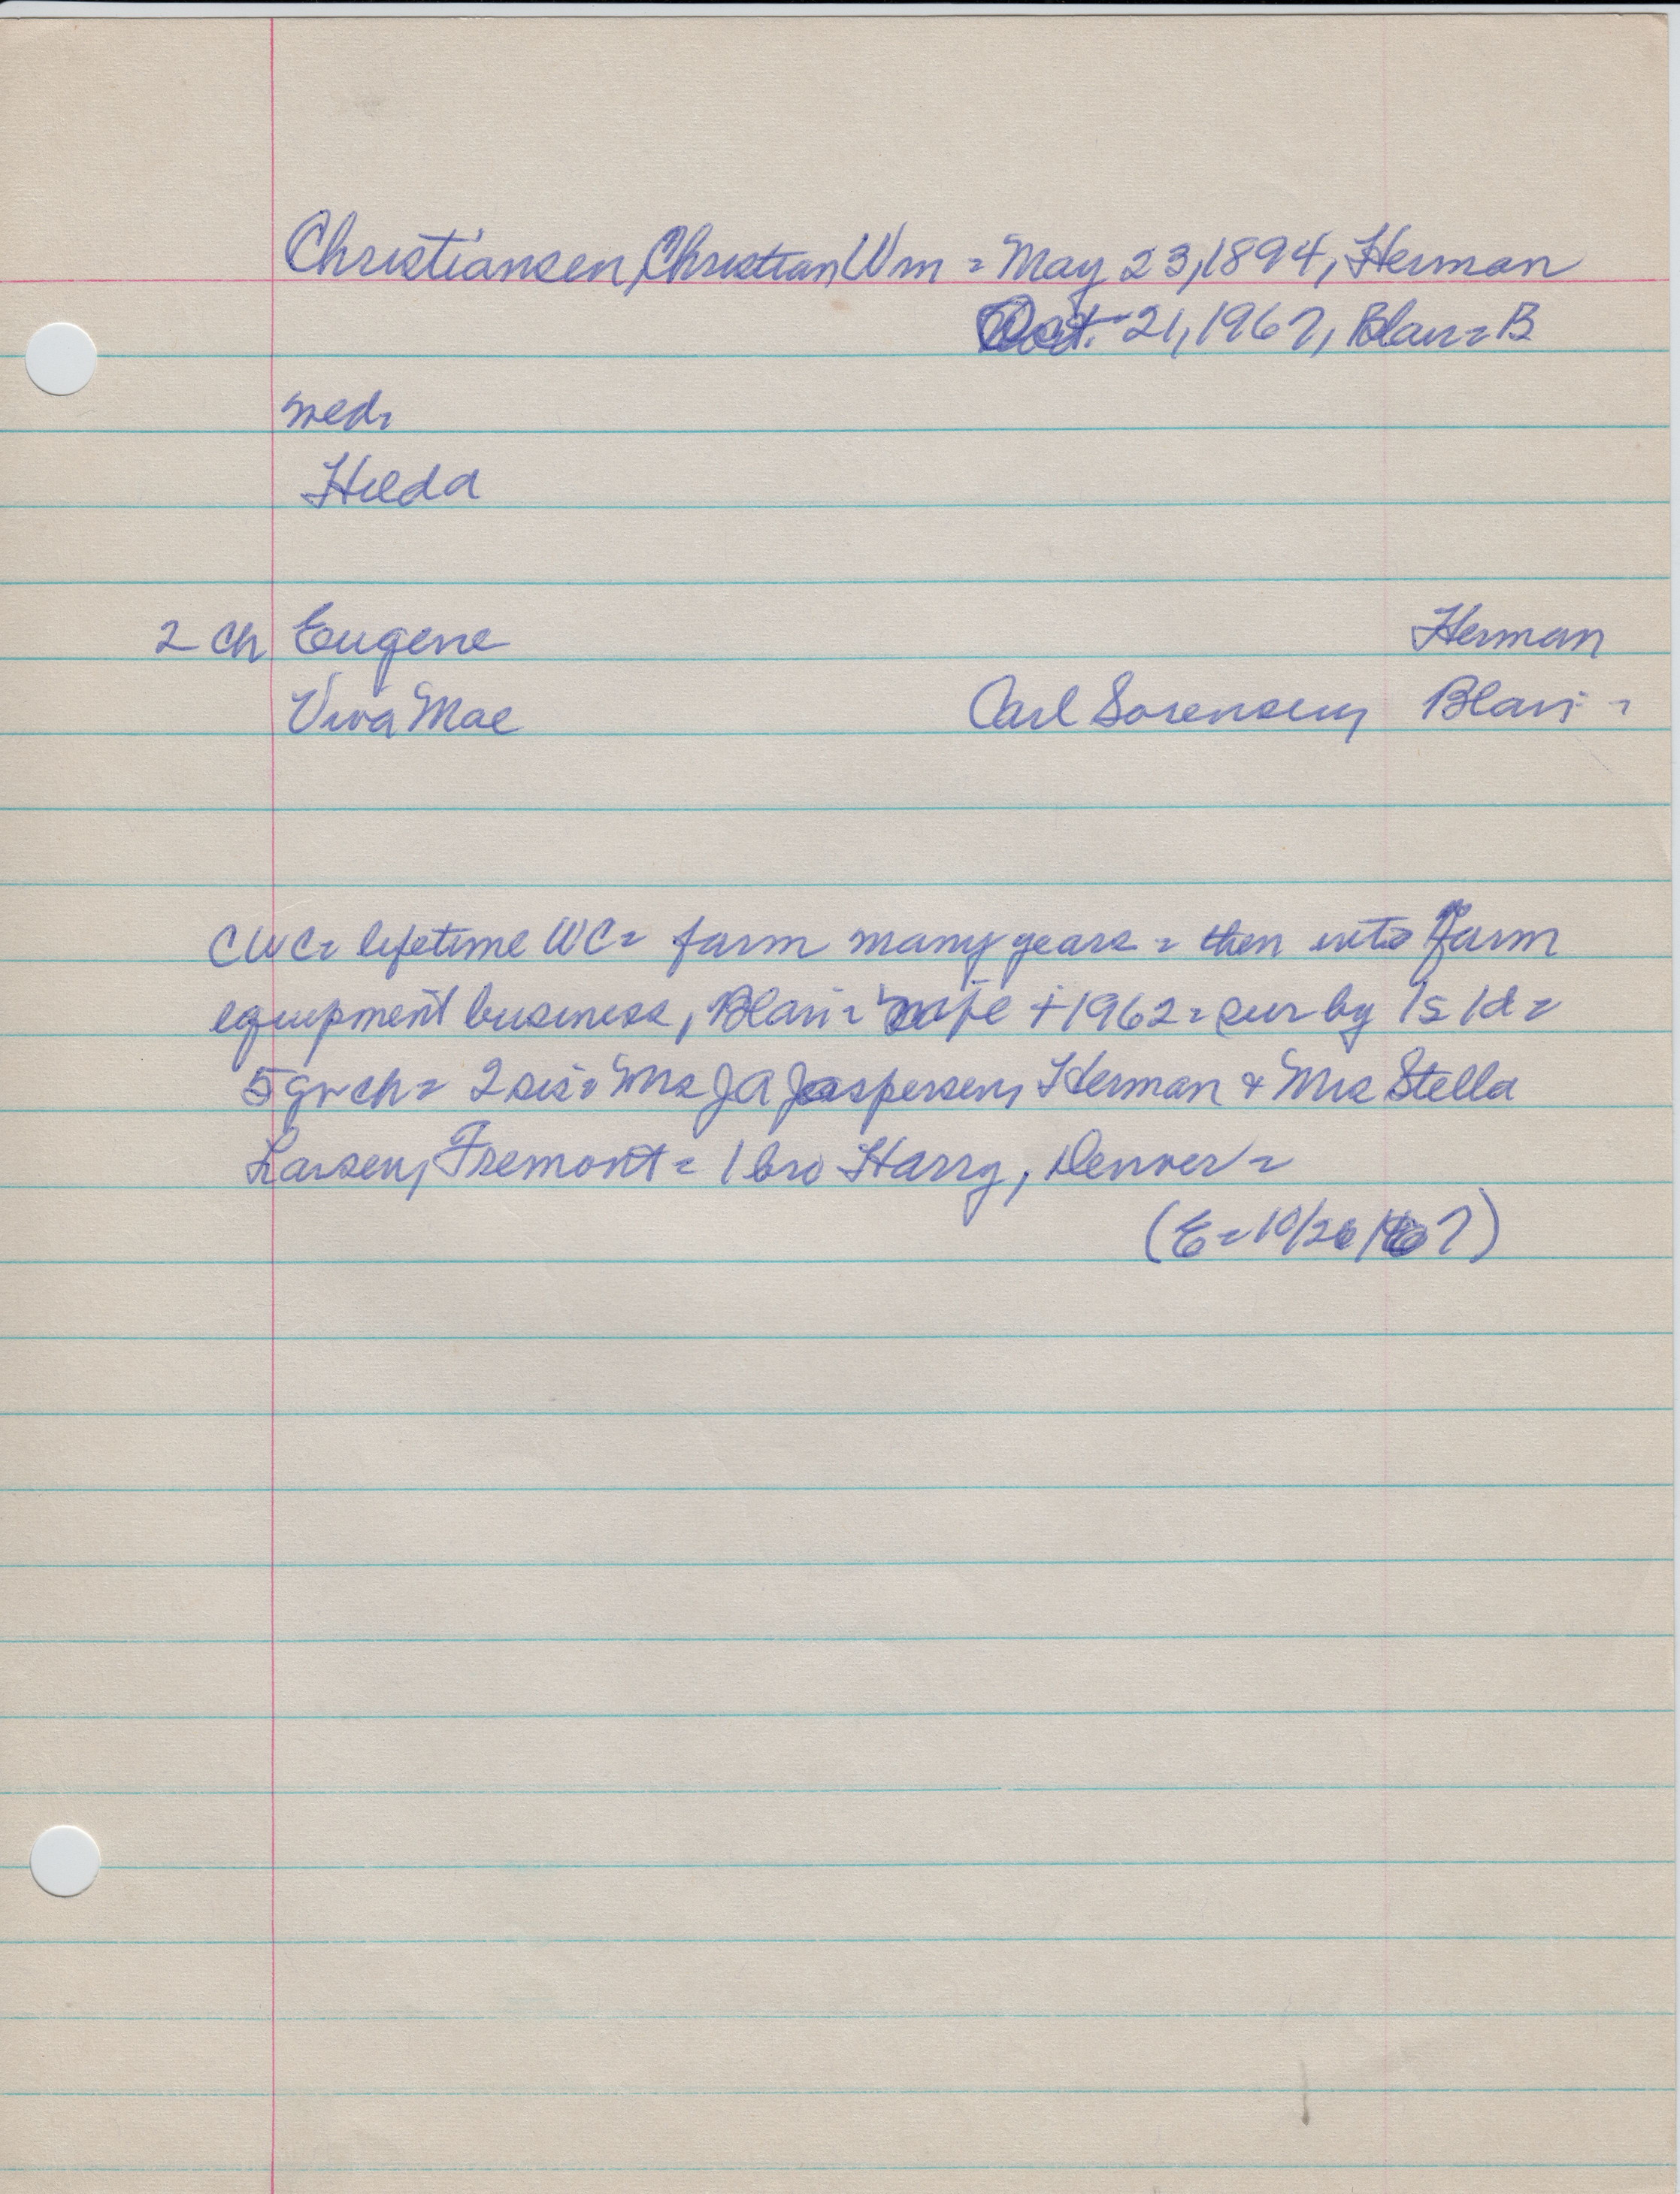 Christiansen, Christian Wm = May 23, 1894, Herman
Oct. 21, 1967, Blair = B
med.
Hilda
2 ch Eugene Herman
Viva Mae Carl Sorensen, Blair =
CWC = lifetime WC = farm many years = then into farm
equipment business, Blair = wife + 1962 = sur by 1s 1d =
5 gr ch = 2 sis = Mrs J A Jaspersen, Herman & Mrs Stella
Larsen, Fremont = 1 bro Harry, Denver =
(E = 10/26/67)